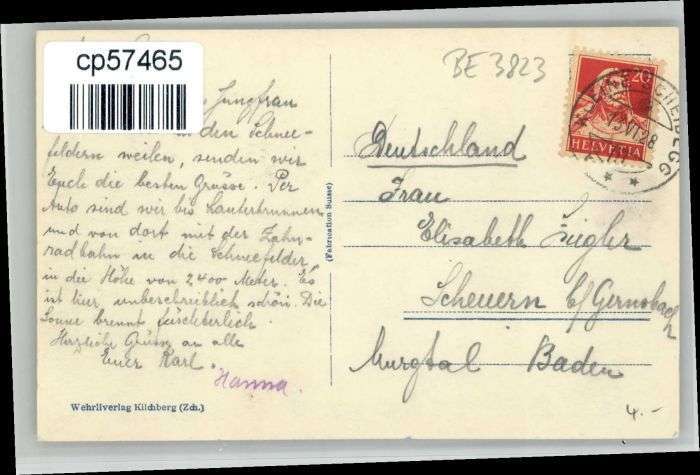 cp57465
BE 3823
Jungfrau
den Schnee-
feldern weilen, senden wir
Euch die besten Grüsse. Per
Auto sind wir bis Lauterbrunnen
und von dort mit der Zahn-
radbahn in die Schneefelder
in die Höhe von 2400 Meter. Es
ist hier unbeschreiblich schön. Die
Sonne brennt fürchterlich.
Herzliche Grüsse an alle
Euer Karl.
Hanna.
Wehrliverlag Kilchberg (Zch.)
(Fabrication Suisse)
20
HELVETIA
SCHEIDEGG
Deutschland
Frau
Elisabeth Ziegler
Scheuern b/Gernsbach
Murgtal Baden
4.-